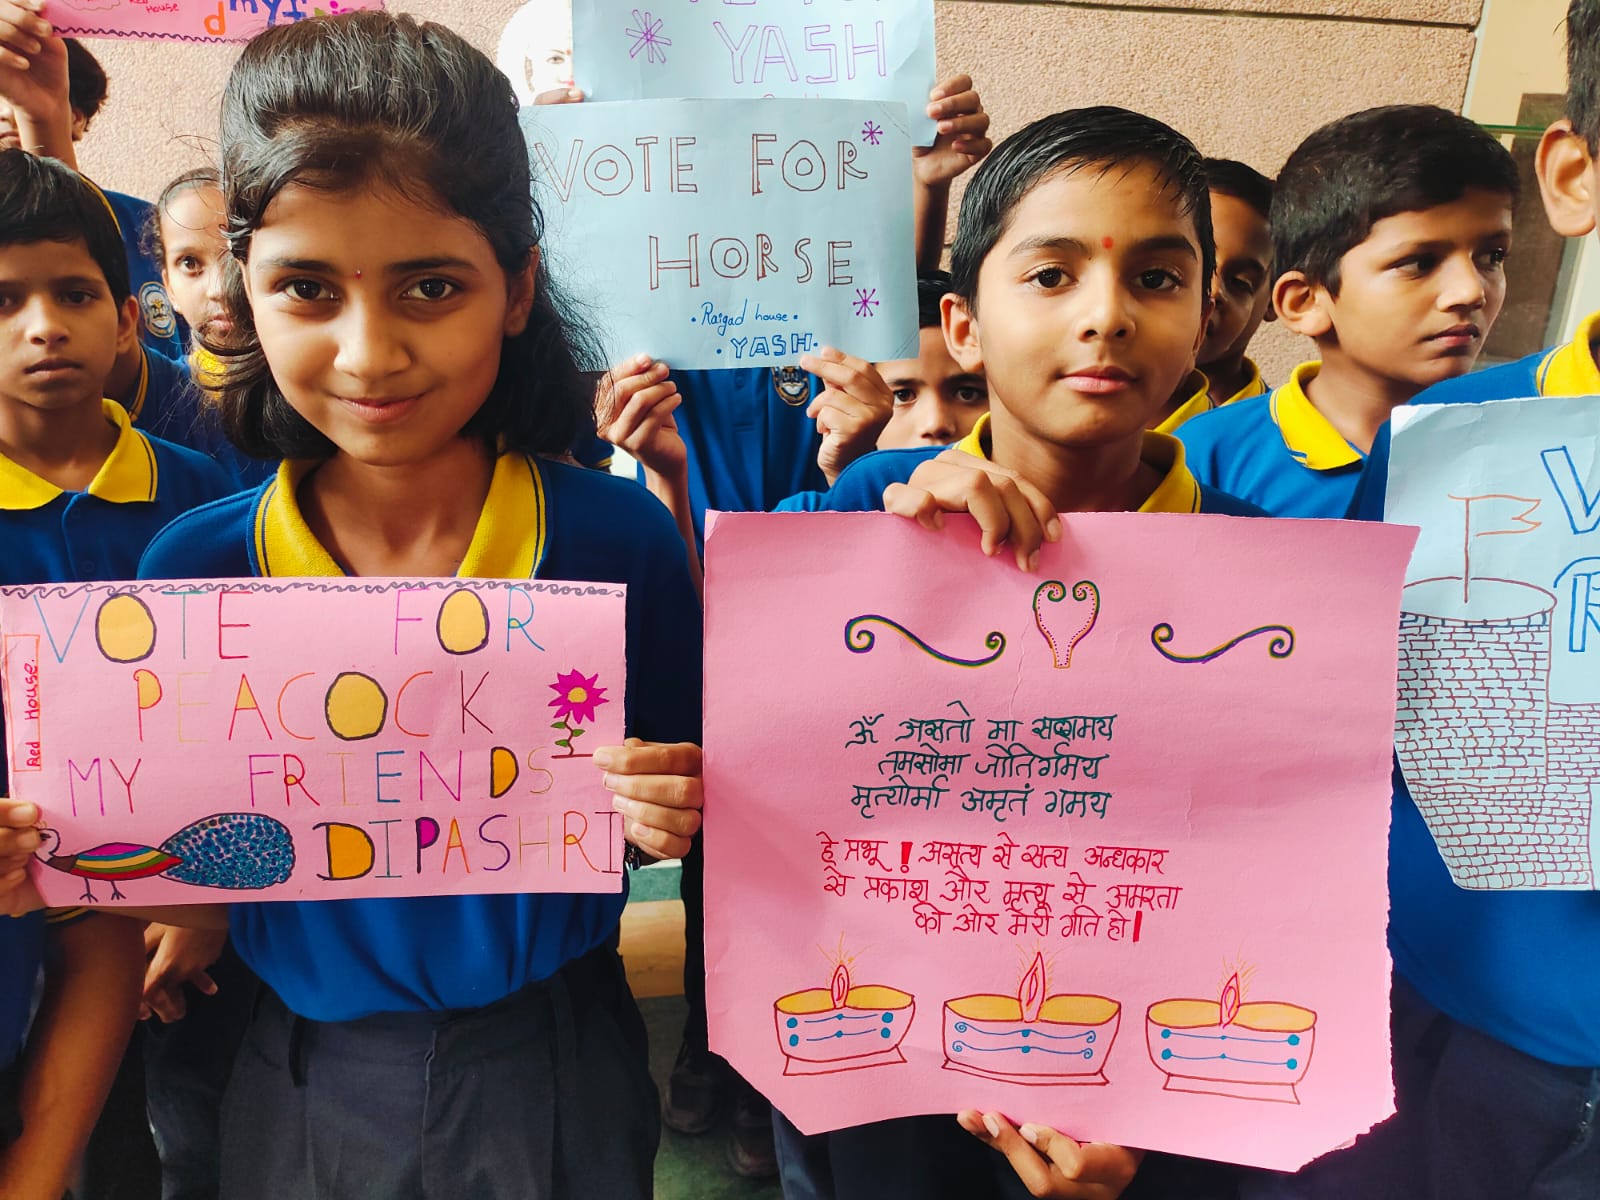 Red House
YASH
VOTE FOR
HORSE
• Raigad house •
• YASH •
VOTE FOR
PEACOCK
MY FRIENDS
DIPASHRI
Red House.
ॐ असतो मा सद्गमय
तमसोमा जोतिर्गमय
मृत्योर्मा अमृतं गमय
हे प्रभू ! असत्य से सत्य अन्धकार
से प्रकाश और मृत्यू से अमरता
की ओर मेरी गति हो।